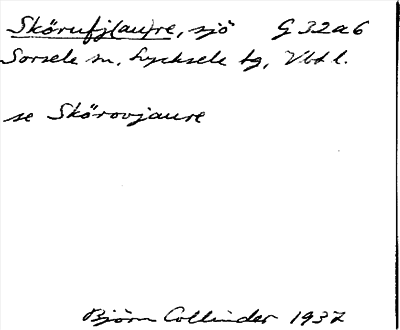 Skörufj(au)re, sjö G 32a6
Sorsele sn, Lycksele tg, Vbtl.
se Skörovjaure
Björn Collinder 1937